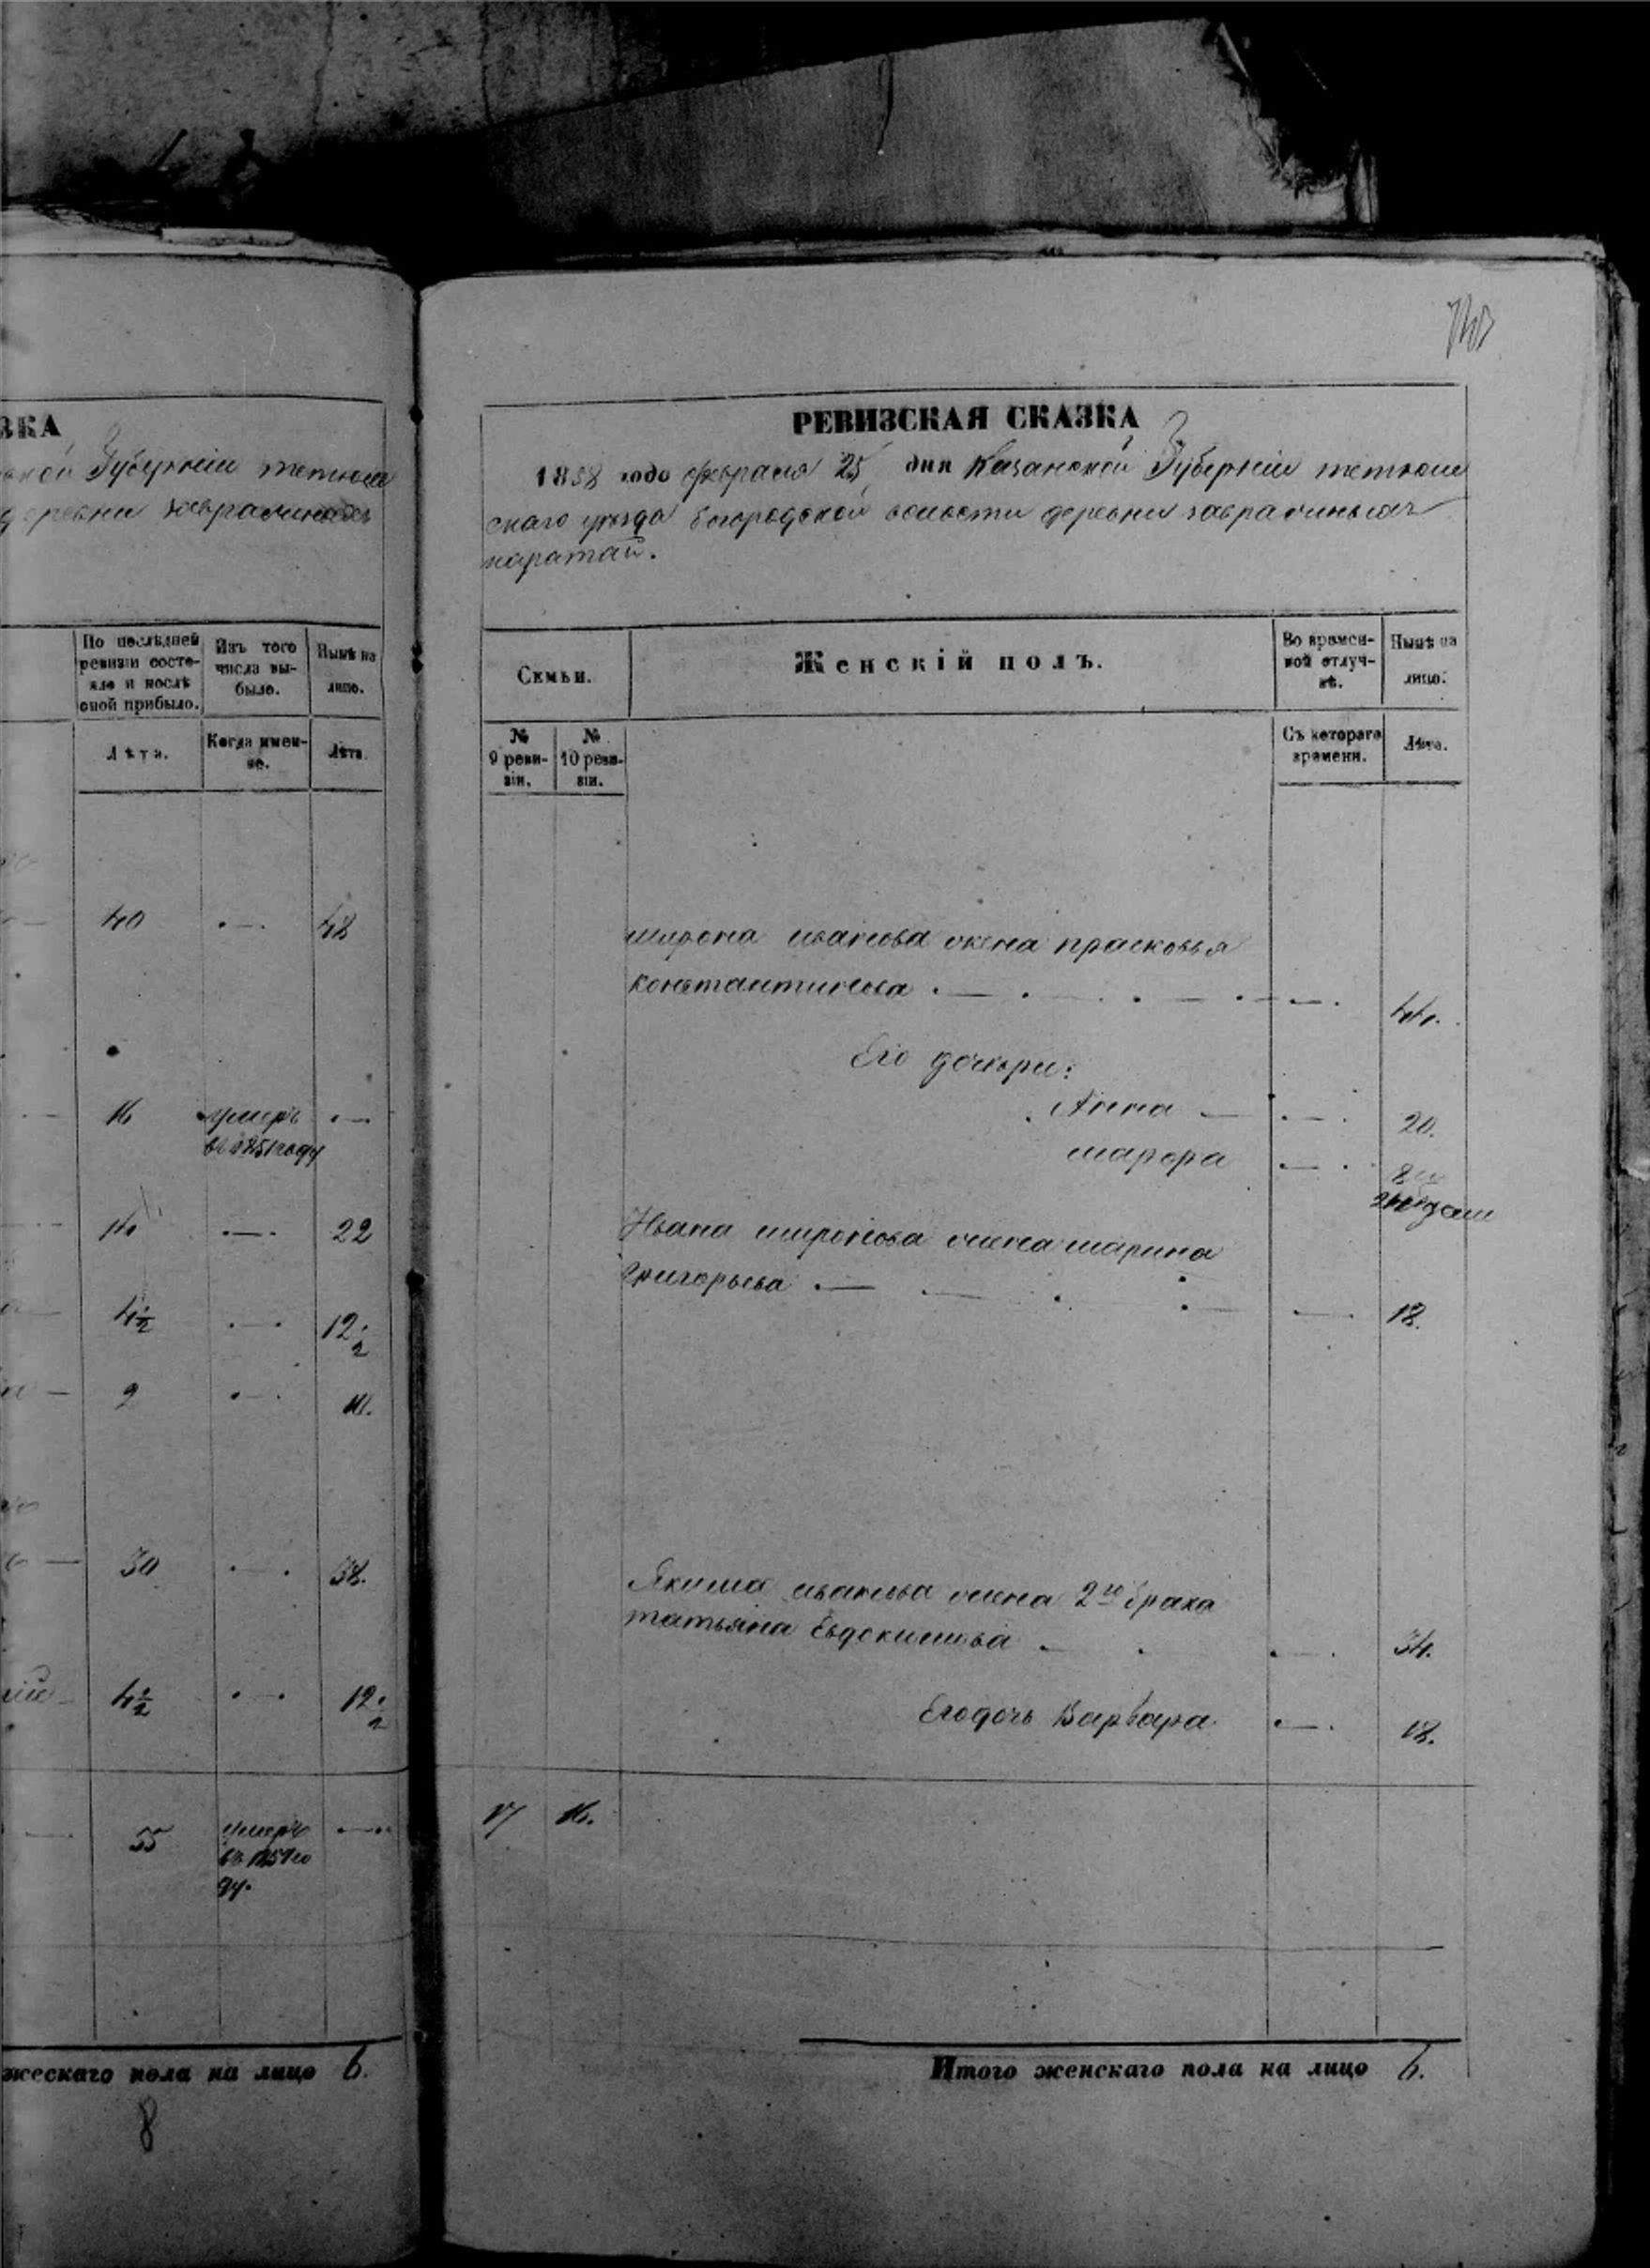 ЗКА
ской Губернiи тетюш
деревни
По послѣдней ревизiи состояло и послѣ оной прибыло.
Изъ того числа выбыло.
Нынѣ на лицо.
Лѣта.
Когда именно.
Лѣта.
40 48
16 умеръ
въ 1851 году
14 22
4½ 12½
2 10.
30 38.
4½ 12½
55 умеръ
въ го
ду.
жескаго пола на лицо 6.
8
РЕВИЗСКАЯ СКАЗКА
1858 года февраля 25 дня Казанской Губернiи тетюш
скаго уѣзда богородской волости деревни
каратай.
Семьи.
Женскiй полъ.
Во временной отлучкѣ.
Нынѣ на лицо.
№ 9 ревизiи.
№ 10 ревизiи.
Съ котораго времени.
Лѣта.
мирона иванова жена прасковья
константинова 44.
Его дочери:
Анна 20.
8
недели
Ивана миронова жена марина
Григорьева 18.
Якима иванова жена 2го брака
татьяна Евдокимова 34.
Его дочь Варвара 18.
17 16.
Итого женскаго пола на лицо 6.